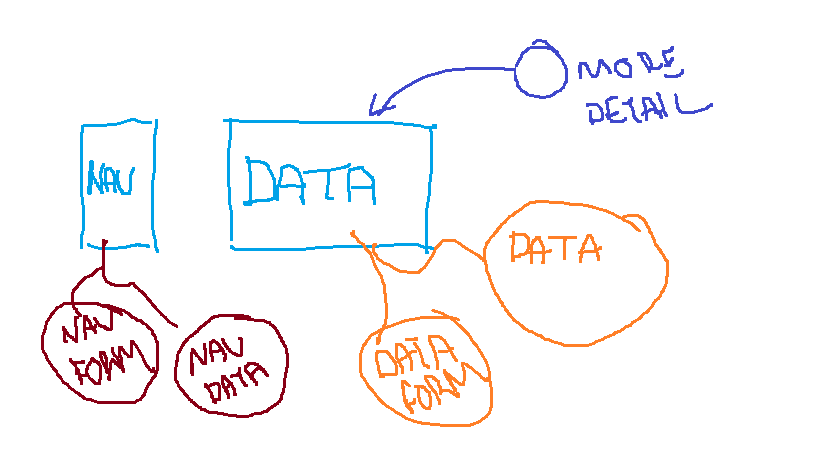 MORE
DETAIL
NAV
DATA
DATA
NAV
FORM
NAV
DATA
DATA
FORM